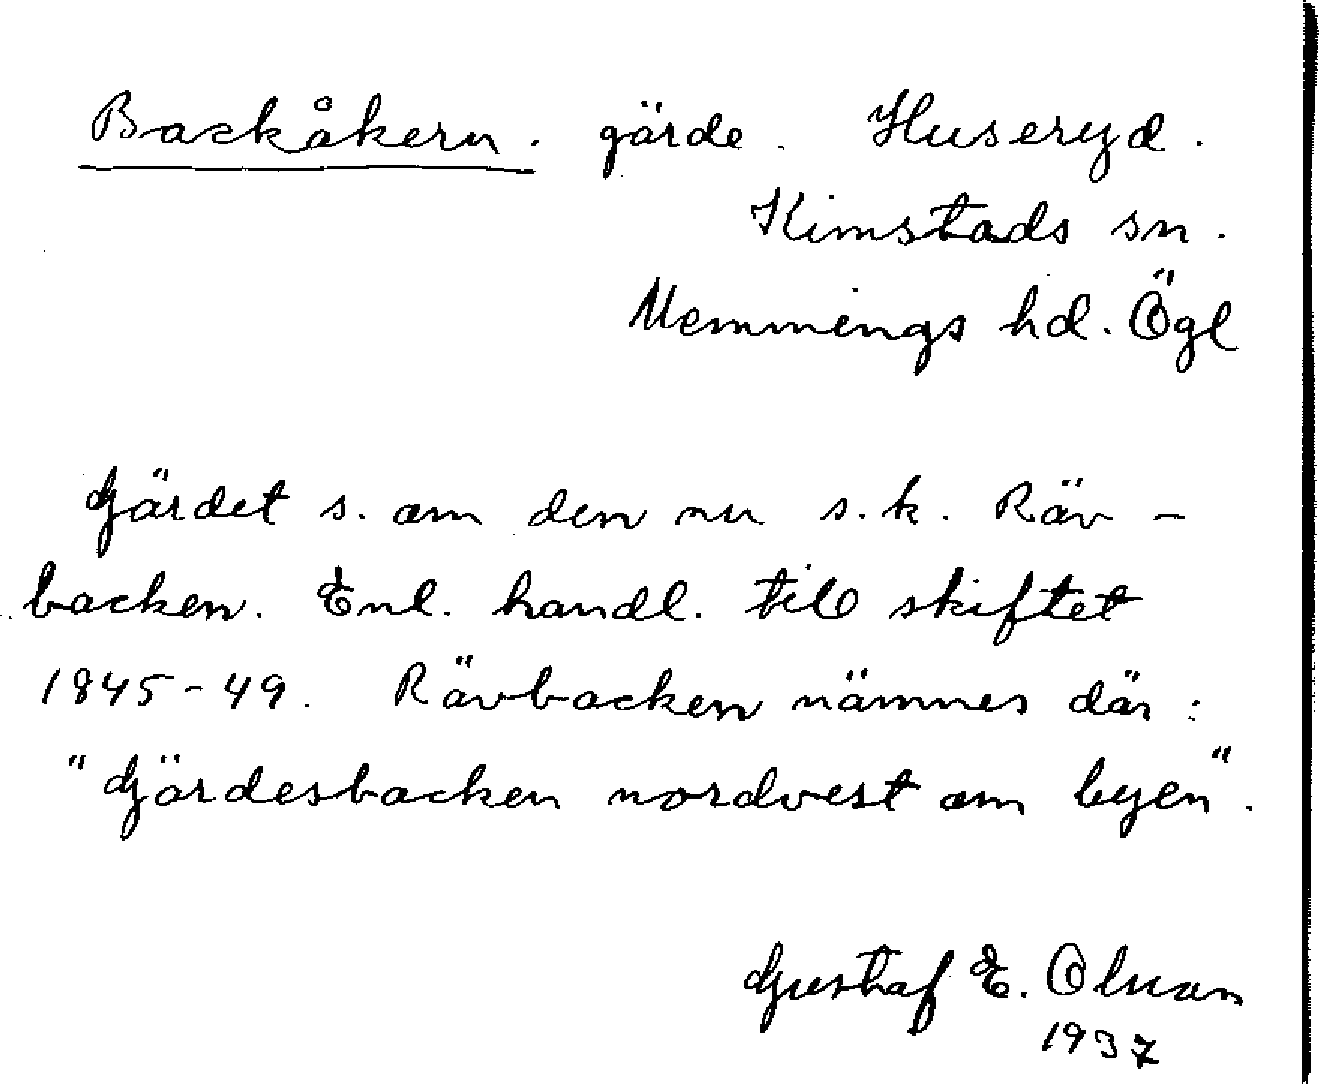 Backåkern. gärde. Huseryd.
Kimstads sn.
Memmings hd. Ögl
Gärdet s. om den nu s.k. Räv-
backen. Enl. handl. till skiftet
1845-49. Rävbacken nämnes där:
"Gärdesbacken nordvest om byen".
Gustaf E. Olsson
1937